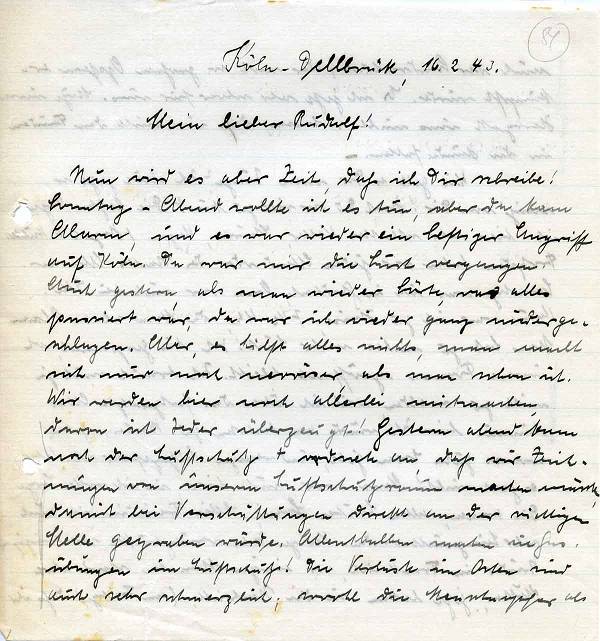 84
Köln-Dellbrück, 16.2.43.
Mein lieber Rudolf!
Nun wird es aber Zeit, daß ich Dir schreibe!
Sonntag-Abend wollte ich es tun, aber da kam
Alarm, und es war wieder ein heftiger Angriff
auf Köln. Da war mir die Lust vergangen.
Auch gestern, als man wieder hörte, was alles
passiert war, da war ich wieder ganz niederge-
schlagen. Aber, es hilft alles nichts, man macht
sich nur noch nervöser, als man schon ist.
Wir werden hier noch allerlei mitmachen,
davon ist Jeder überzeugt! Gestern abend kam
noch der Luftschutz + ordnete an daß wir Zeich-
nungen von unserm Luftschutzraum machen müssen,
damit bei Verschüttungen direkt an der richtigen
Stelle gegraben würde. Allenthalben
übungen im Luftschutz! Die Verluste im Osten sind
auch sehr schmerzlich, sowohl die Menschenopfer als